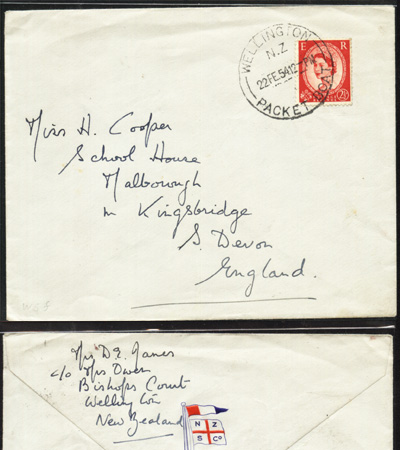 WELLINGTON
N.Z
22 FE 54 12
PACKET BOAT
E R
2½
Miss H. Cooper
School House
Malborough
Nr Kingsbridge
S. Devon
England.
Mrs D.E. James
c/o Mrs Owen
Bishops Court
Wellington
New Zealand
N Z
S Co